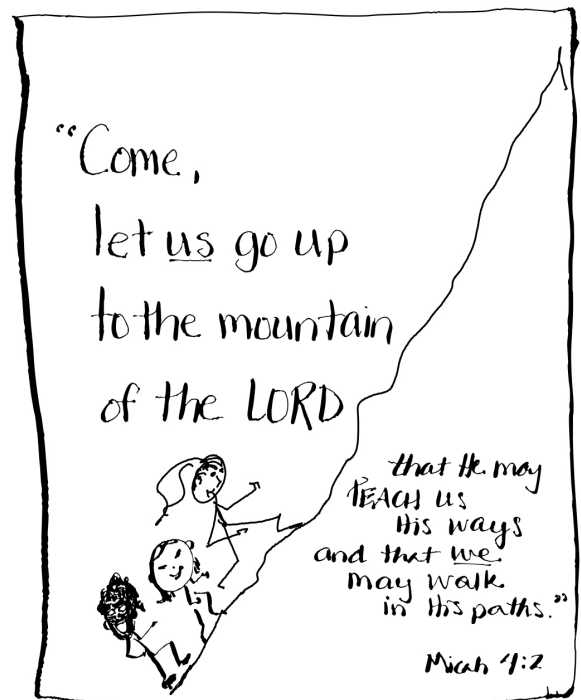 "Come,
let us go up
to the mountain
of the LORD
that He may
TEACH US
His ways
and that we
may walk
in His paths."
Micah 4:2